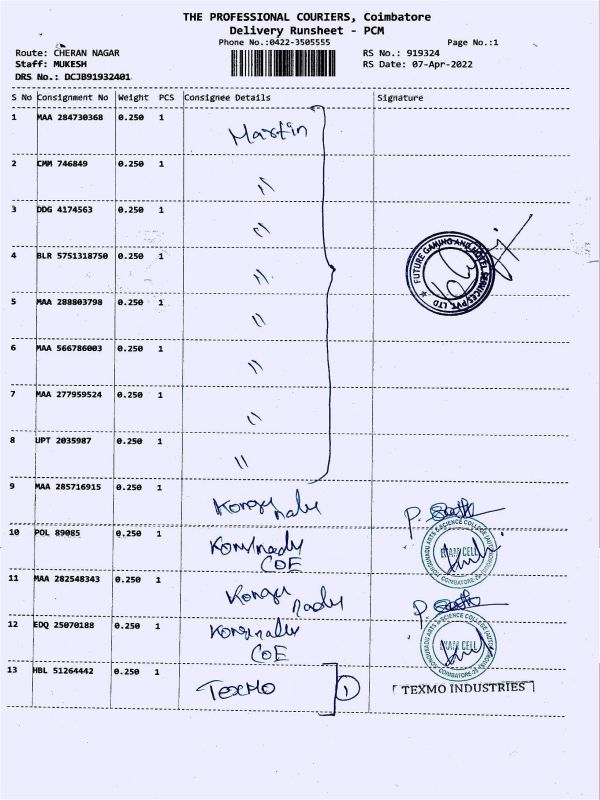 THE PROFESSIONAL COURIERS, Coimbatore
Delivery Runsheet - PCM
Phone No.:0422-3505555 Page No.:1
Route: CHERAN NAGAR RS No.: 919324
Staff: MUKESH RS Date: 07-Apr-2022
DRS No.: DCJB91932401
S No Consignment No Weight PCS Consignee Details Signature
1 MAA 284730368 0.250 1 Martin
2 CMM 746849 0.250 1 "
3 DDG 4174563 0.250 1 "
4 BLR 5751318750 0.250 1 "
5 MAA 288803798 0.250 1 "
6 MAA 566786003 0.250 1 "
7 MAA 277959524 0.250 1 "
8 UPT 2035987 0.250 1 "
FUTURE GAMING AND HOTEL SERVICES PVT. LTD
9 MAA 285716915 0.250 1 Kongu nadu
10 POL 89085 0.250 1 Kongunadu
COE
KONGUNADU ARTS & SCIENCE COLLEGE
EXAM CELL
COIMBATORE-29
11 MAA 282548343 0.250 1 Kongu nadu
12 EDQ 25070188 0.250 1 Kongunadu
COE
KONGUNADU ARTS & SCIENCE COLLEGE
EXAM CELL
COIMBATORE-29
13 HBL 51264442 0.250 1 TEXMO 1 TEXMO INDUSTRIES